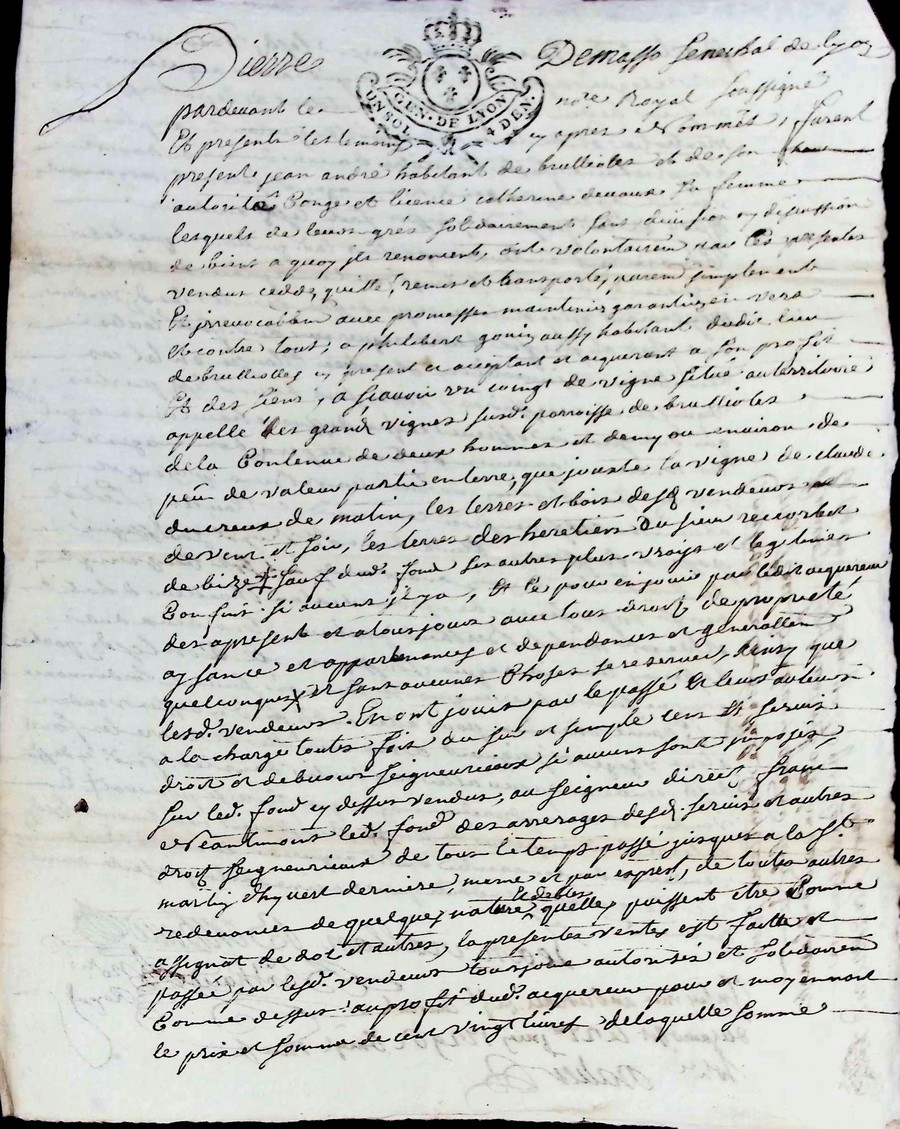 Pierre Demasso Senechal de lyon
GEN. DE LYON
UN SOL 4 DEN.
pardevant le no.re Royal Soussigné
Et presents les temoins cy apres Nommés, furent
present jean andré habitant de brullioles et de son
autorité Conge et licence catherine devaux sa femme
lesquels de leurs grés solidairement sans division ny discussion
de biens a quoy ils renoncent, ont volontairem par ces presentes
vendus cedde, quitté, remis et transporté, purem simplement
Et irrevocablem avec promesses maintenir garantir, en vers
et contre tout, a philibert gonin aussy habitant dudit lieu
de brullioles cy present et acceptant et acquerant a son profit
Et des siens, a scavoir un coing de vigne situé au territoire
appellé des grand vignes susd. parroisse de brullioles
de la Contenue de deux hommes et demy ou environ de
peu de valeur partie en terre, que jouxte la vigne de claude
ducreux de matin, les terres et bois desd vendeurs
de vent et soir, les terres des heretiers du sieur recorbet
de bize sauf dud. fond ses autres plus vrays et legitimes
Confins si aucuns y a, Et ce pour en jouir par ledit acquereur
des apresent et a tousjours avec tous droits de proprieté
aysance et appartenances et dependances et generallem
quelconques et sans aucunes choses se reserver, ainsy que
lesd. vendeurs En ont jouis par le passé Et leurs auteurs
a la charge toutes fois du sur et simple cens Et servis
droit et debvoirs seigneuriaux si aucuns sont imposés,
sur led. fond cy dessus vendus, au seigneur direct, franc
Neantmoins led. fond des arrerages desd. servis et autres
droits seigneuriaux de tous le temps passé jusques a la St.
martin d'hyvert derniere, meme et par exprest, de toutes autres
redevances de quelques nature et debtes quelles puissent être Comme
assignat de dot et autres, la presentes ventes est faitte et
passée par lesd. vendeurs tousjours autorisés et solidairem
Comme dessus, au profit dud. acquereur pour et moyennant
le prix et somme de cent vingt livres de laquelle somme